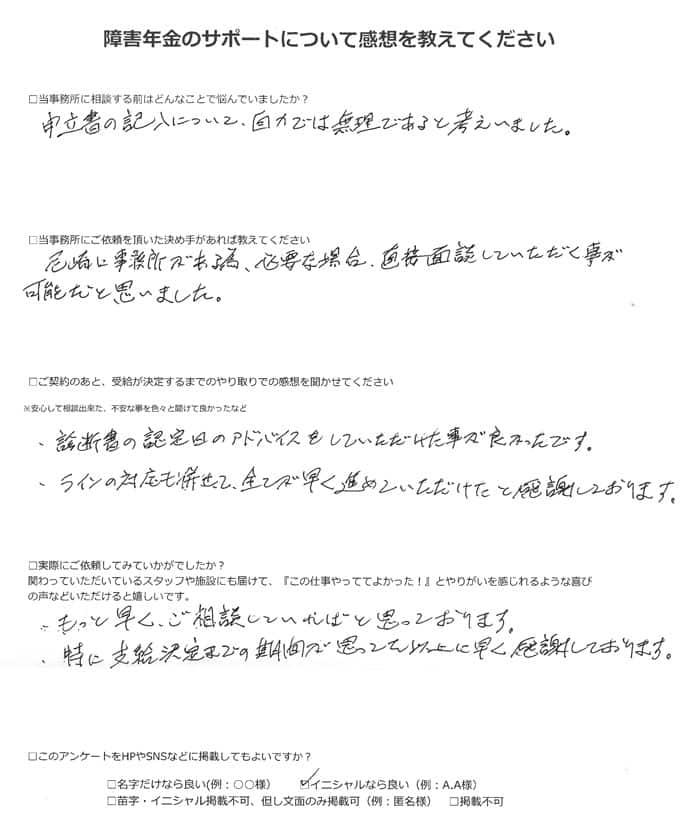 障害年金のサポートについて感想を教えてください
□当事務所に相談する前はどんなことで悩んでいましたか？
申立書の記入について、自力では無理であると考えいました。
□当事務所にご依頼を頂いた決め手があれば教えてください
尼崎に事務所がある為、必要な場合、直接面談していただく事が
可能だと思いました。
□ご契約のあと、受給が決定するまでのやり取りでの感想を聞かせてください
※安心して相談出来た、不安な事を色々と聞けて良かったなど
・診断書の認定日のアドバイスをしていただけた事が良かったです。
・ラインの対応も併せて、全てが早く進めていただけたと感謝しております。
□実際にご依頼してみていかがでしたか？
関わっていただいているスタッフや施設にも届けて、『この仕事やっててよかった！』とやりがいを感じれるような喜び
の声などいただけると嬉しいです。
・もっと早く、ご相談していればと思っております。
・特に支給決定までの期間が思ってた以上に早く感謝しております。
□このアンケートをHPやSNSなどに掲載してもよいですか？
□名字だけなら良い(例：○○様） ☑イニシャルなら良い（例：A.A様）
□苗字・イニシャル掲載不可、但し文面のみ掲載可（例：匿名様） □掲載不可